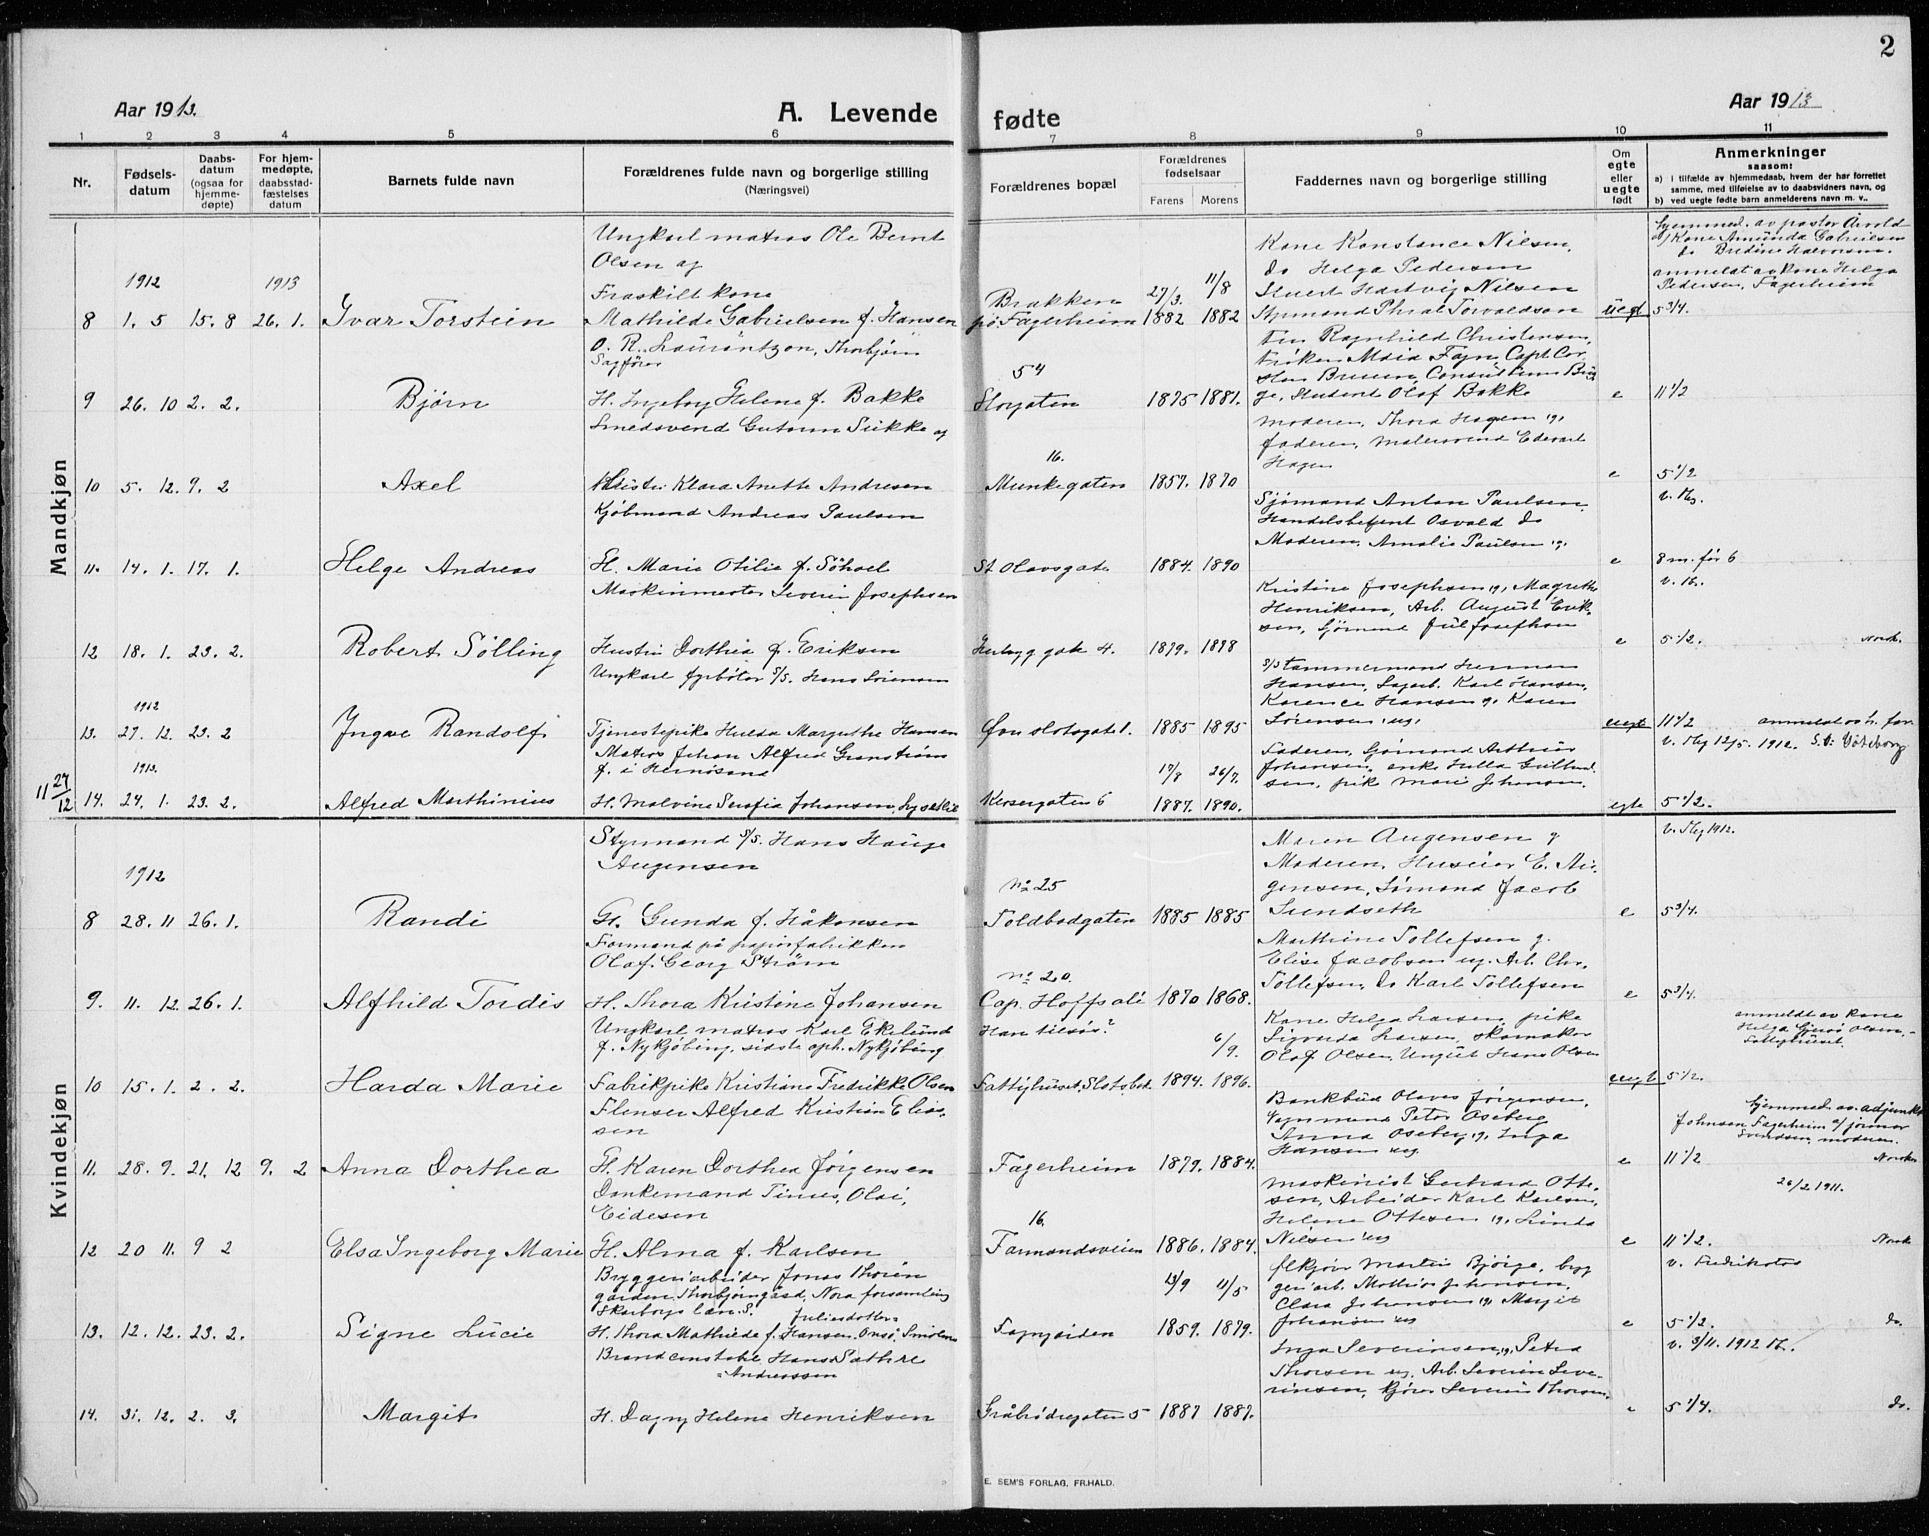 2
Aar 1913.
A. Levende fødte
Aar 1913
1 2 3 4 5 6 7 8 9 10 11
Nr.
Fødsels-
datum
Daabs-
datum
(ogsaa for
hjemme-
døpte)
For hjem-
medøpte,
daabsstad-
fæstelses
datum
Barnets fulde navn
Forældrenes fulde navn og borgerlige stilling
(Næringsvei)
Forældrenes bopæl
Forældrenes
fødselsaar
Farens Morens
Faddernes navn og borgerlige stilling
Om
egte
eller
uegte
født
Anmerkninger
saasom:
a) i tilfælde av hjemmedaab, hvem der har forrettet
samme, med tilføielse av to daabsvidners navn, og
b) ved uegte fødte barn anmelderens navn m. v..
Mandkjøn
Ungkarl matros Ole Bernt
Olsen og
Fraskilt kone
1912 1913
8 1. 5 15. 8 26. 1. Ivar Torstein Mathilde Gabrielsen f. Hansen
Brakken 27/3. 11/8
på Fagerheim 1882 1882
Kone Konstance Nilsen,
do Helga Pedersen
Hartvig Nilsen
uegt 5 3/4.
hjemmed. av pastor Arvold
Kone Amunda Gabrielsen
anmeldt av kone Helga
Pedersen, Fagerheim
O. R. Laurantzon, Thorbjørn
Sagfører
9 26. 10 2. 2. Bjørn H. Ingeborg Helene f. Bakke
54
Storgaten 1875 1881.
Ragnhild Christensen,
Olaf Bakke
e 11 1/2
Smedsvend Gutorm Sukke og
10 5. 12. 9. 2 Axel Klara Anette Andresen
16.
Munkegaten 1857. 1870
moderen, Thora Hagen og
faderen, malersvend Edvart
Hagen
e 5 1/2
v. Mg.
Kjøbmand Andreas Paulsen
11. 14. 1. 17. 1. Helge Andreas H. Marie Otilie f.
St Olavsgate 1884. 1890
Sjømand Anton Paulsen,
Handelsbetjent Osvald do
Moderen, Amalie Paulsen
e 8 m. før 6
Maskinmester Severin Josephsen
12 18. 1. 23. 2. Robert Sølling Hustru Dorthea f. Eriksen
gate 4. 1879.
Kristine Josephsen og Magrethe
Henriksen, Arb. August Erik-
sen, Sjømand Jul Josephsen
e 5 1/2. Norsk.
Ungkarl fyrbøter S/S. Hans Sørensen
1912
13. 27. 12. 23. 2 Ingvar Randolf Tjenestepike Hulda Margrethe Hansen
1885 1895
S/S tømmermand Herman
Hansen, Sagarb. Karl Hansen,
Karence Hansen og Karen
Sørensen
uegt 11 1/2
v. Mg 12/5. 1912.
Matros Johan Alfred Granstrøm
f. i Hernøsand
1913.
11 27/12 14. 24. 1. 23. 2. Alfred Marthinius H. Malvine Serafia Johansen, Lysekil
17/8 26/7.
Kirkegaten 6 1887. 1890.
Faderen, Sjømand Arthur
Johansen, enke Hilda
sen, pike Marie Johansen.
egte 5 1/2.
v. Mg 1912.
Kvindekjøn
Styrmand S/S. Hans Hauge
Augensen
1912
8 28. 11 26. 1. Randi H. Gunda f. Håkonsen
No 25
Toldbodgaten 1885 1885
Maren Augensen og
Moderen, Huseier E. Au-
gensen, Sømand Jacob
Sundseth
e 5 3/4.
Formand på papirfabrikken
Olaf Georg Strøm
9. 11. 12. 26. 1. Alfhild Tordis H. Thora Kristine Johansen
No 20.
Cap. Hoffs ale 1870 1868.
Marthine Tollefsen og
Elise Jacobsen ug. Arb. Chr.
Tollefsen, Do Karl Tollefsen
e 5 3/4.
Ungkarl matros Karl Ekelund
f. Nykjøbing, sidste oph. Nykjøbing
10 15. 1. 2. 2. Harda Marie Fabrikpike Kristiane Fredrikke Olsen
6/9.
Fattighuset, Slotsbd. 1894. 1896.
Kone Helga Larsen, pike
Sigvarda Larsen, skomaker
Olaf Olsen, Ungut Hans Olsen
uegt 5 1/2.
anmeldt av kone
Helga Olsen,
Fattighuset.
Flenser Alfred Kristian Elias-
sen
11. 28. 9. 21. 12 9. 2 Anna Dorthea H. Karen Dorthea Jørgensen
Fagerheim 1879. 1884.
Bankbud Olaves Jørgensen,
Petor Oseberg
Anna Oseberg og Inga
Hansen ug
e 11 1/2 Norske
hjemmed. av adjunkt
Johnsen, Fagerheim
Svendsen, moderen.
Donkemand Tinus, Olai,
Eidesen
12 20 11. 9 2 Elsa Ingeborg Marie H. Alma f. Karlsen
16.
Formandsveien 1886. 1884.
maskinist Gerhard Otte-
sen, Arbeider Karl Karlsen,
Helene Ottesen og Linda
Nilsen ug
26/2 1911.
e 11 1/2. Norsk
v. Fredrikstad
Bryggeriarbeider Jonas Thorin
gården Thorbjørngård, Nora forsamling
Skarborgs læn. S.
Juliusdatter
13. 12. 12. 23. 2. Signe Lucie H. Thora Mathilde f. Hansen, Onsø
13/9 11/5
1859. 1879.
Ølkjører Martin Bjørge, bryg
geriarb. Mathias Johansen,
Clara Johansen og Margit
Johansen ug
e 5 1/2. do.
v. 3/11. 1912
Brandconstabel Hans Sæthre
Andreassen
14. 31. 12. 2. 3. Margit H. Dagny Helene Henriksen
Gråbrødregaten 5 1887 1887.
Inga Severinsen og Petra
Thorsen ug, Arb. Severin Seve-
rinsen, kjører Severin Thorsen.
e 5 1/4. do.
E. SEM'S FORLAG, FR.HALD.